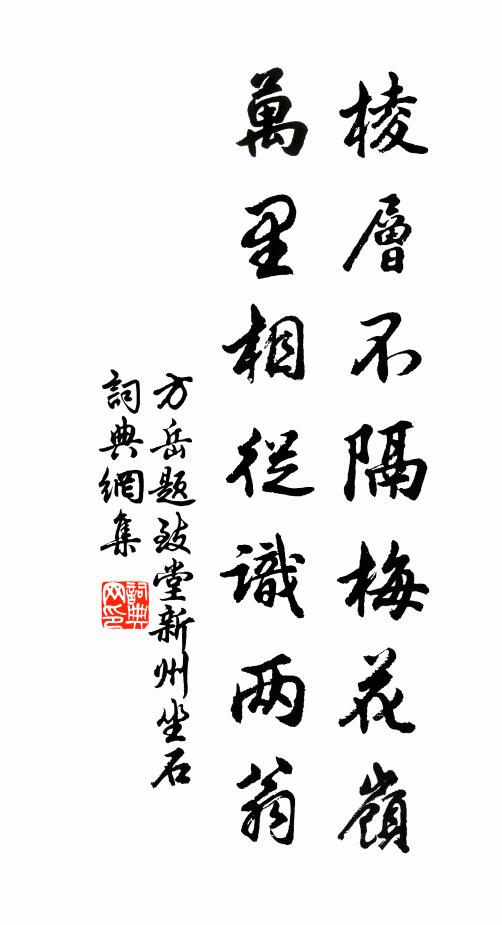 棱層不隔梅花嶺
萬里相從識两翁
方岳题致堂新州坐石
詞典網集
詞典网印